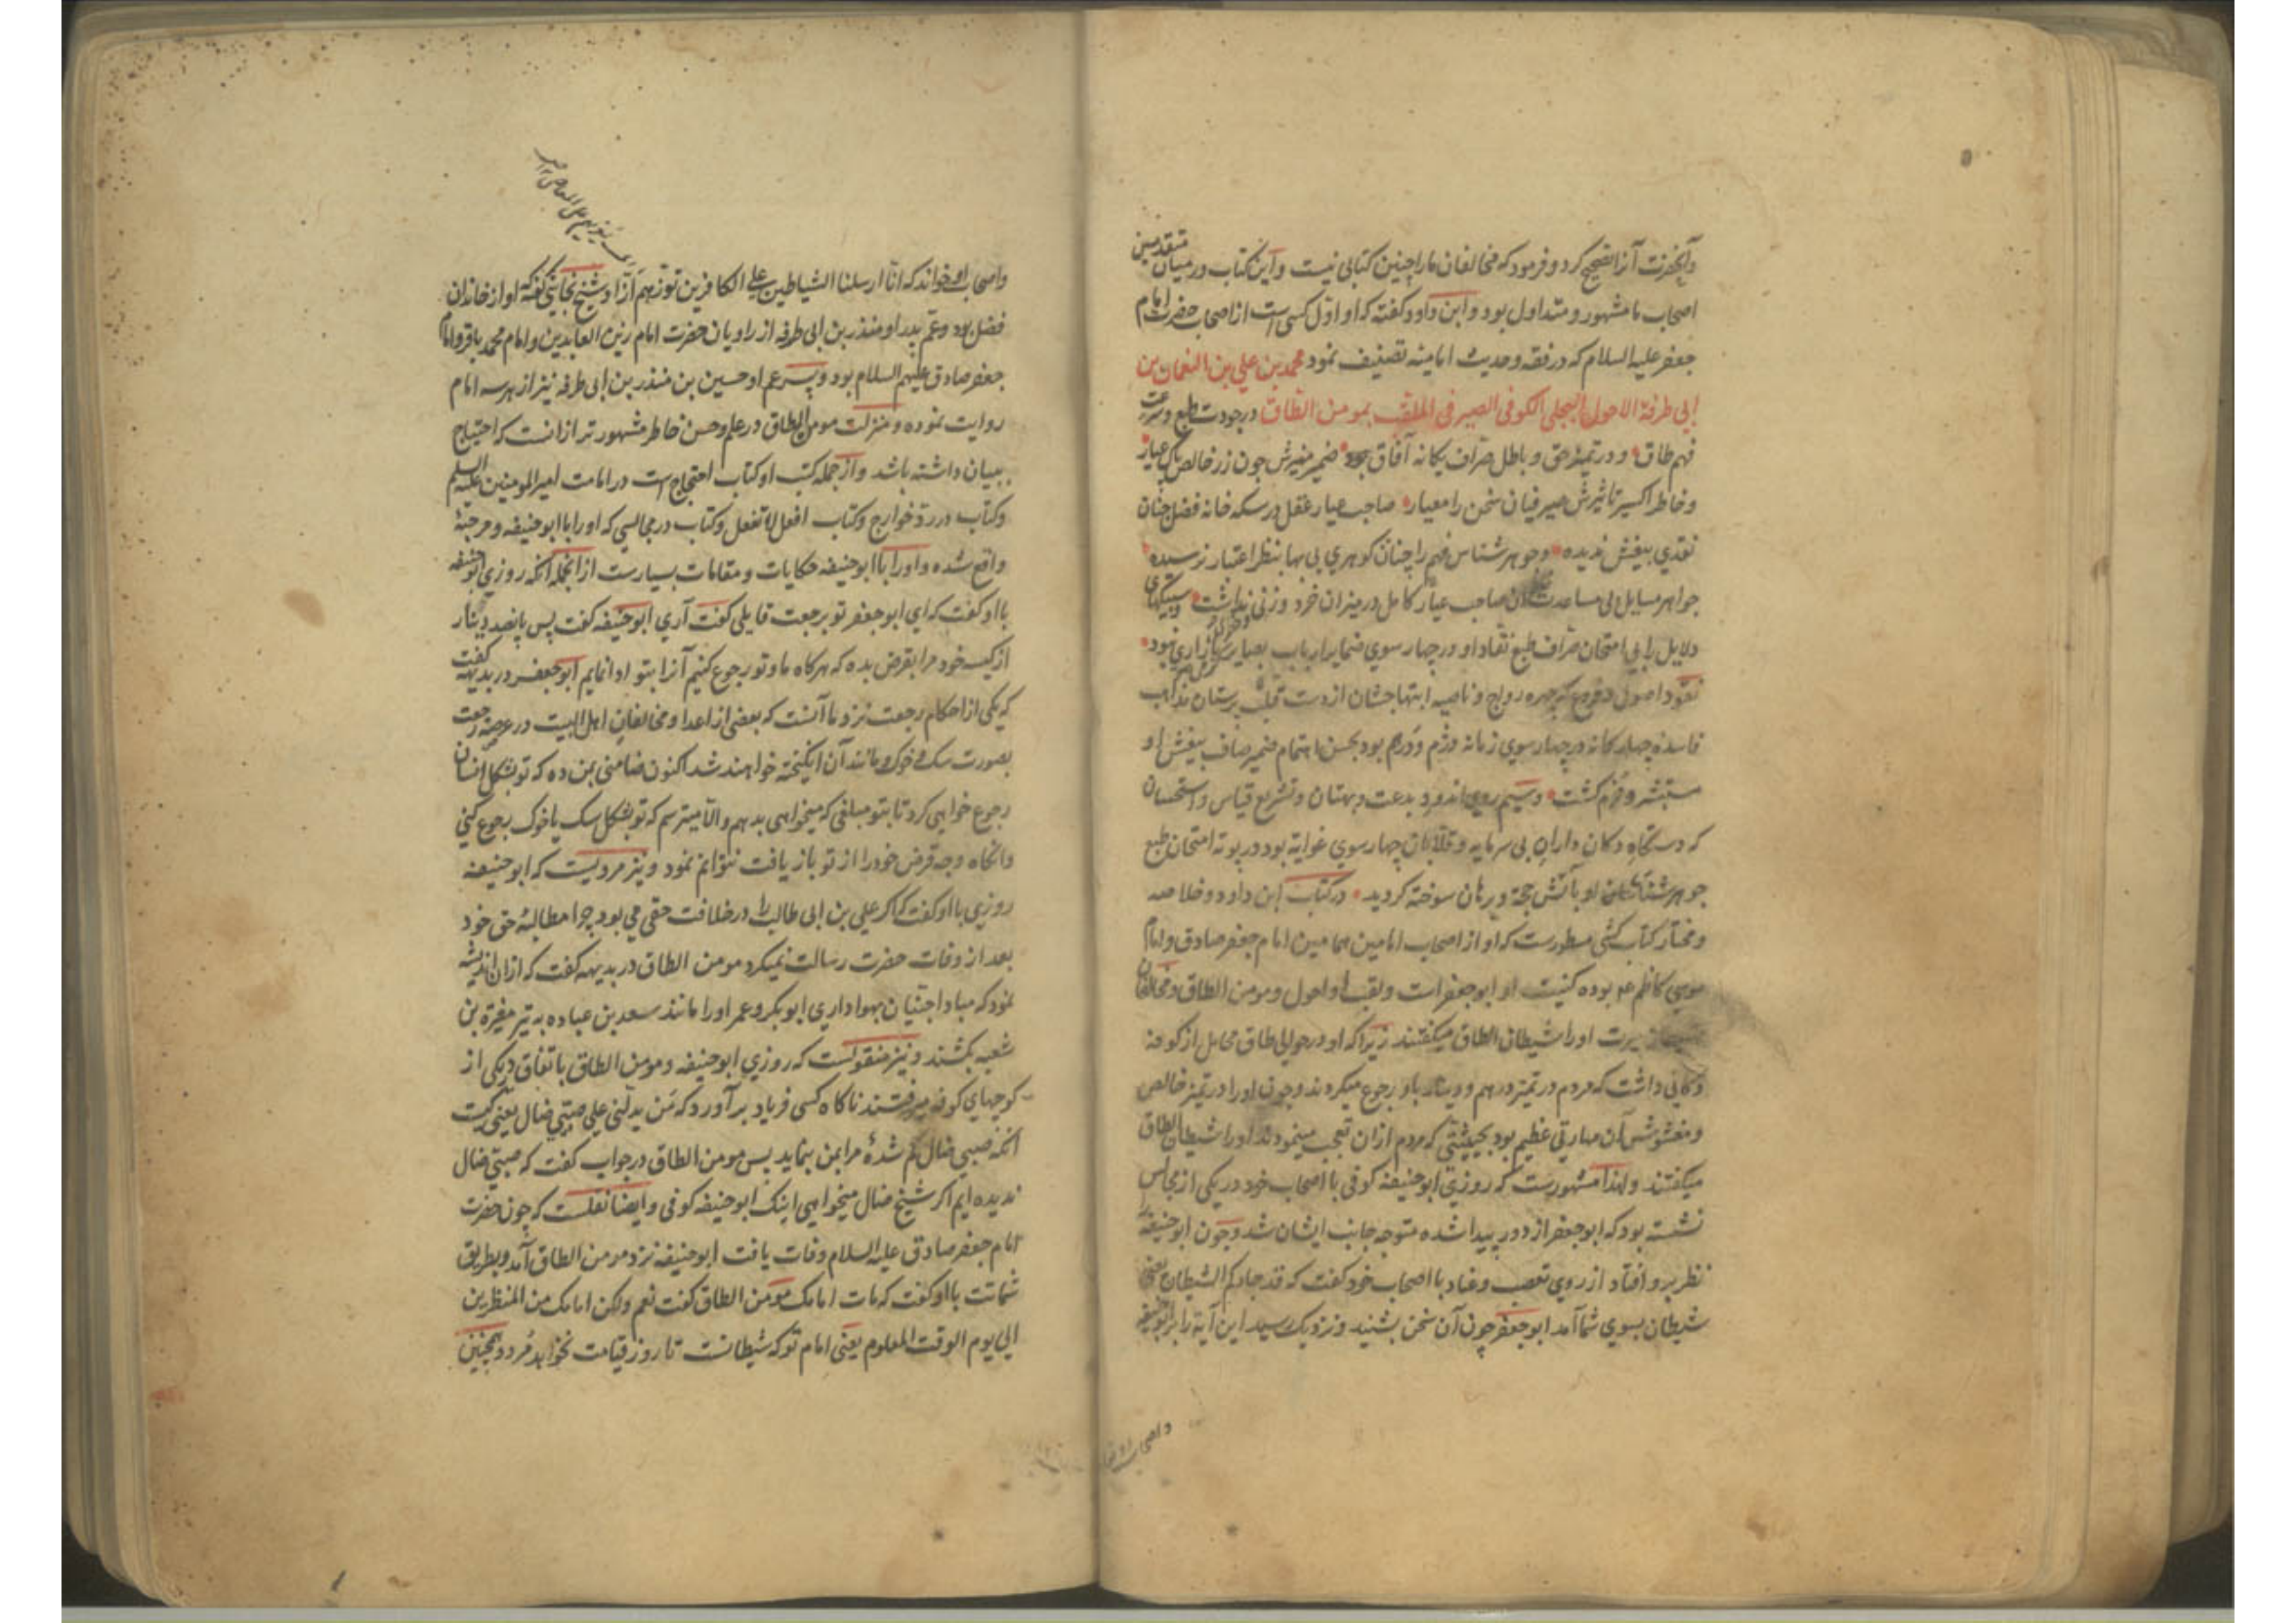 وآنحضرت آنرا تصحیح کرد و فرمود که مخالفان ما را چنین کتابی نیست و این کتاب در میان متقدمین
اصحاب ما مشهور و متداول بود و ابن داود گفته که او اول کسی است از اصحاب حضرت امام
جعفر علیه السلام که در فقه و حدیث امامیه تصنیف نمود محمد بن علی بن النعمان بن
ابی طرفة الاحول البجلی الکوفی الصیرفی الملقب بمومن الطاق در جودت طبع و سرعت
فهم طاق و در تمییز حق و باطل صراف یکانه آفاق بود ضمیر منیرش چون زر خالص پاک عیار
و خاطر اکسیر تاثیرش صیرفیان سخن را معیار صاحب عیار عقل در سکه خانه فضل چنان
نقدی بیغش ندیده و جوهر شناس فهم را چنان کوهری بی بها بنظر اعتبار نرسیده
جواهر مسایل بی مساعدت آن صاحب عیار کامل در میزان خرد وزنی نداشت و سبیکهای
دلایل را بی امتحان صراف طبع نقاد او در چهار سوی ضمایر ارباب بصایر بازاری نبود
نقود اصول و فروع که چهره رواج و ناصیه ابتهاجشان از دست قلب پرستان مذاهب
فاسده چهار کانه در چهار سوی زمانه دژم و درهم بود بحسن اهتمام ضمیر صاف بیغش او
مستبشر و خرم کشت و سیم روی اندود بدعت و بهتان و تشریع قیاس و استحسان
که دستکاه دکان داران بی سرمایه و قلابان چهار سوی غوایة بود در بوته امتحان طبع
جوهر شناسان او بآتش حجة و برهان سوخته کردید در کتاب ابن داود و خلاصه
و مختار کتاب کشی مسطورست که او از اصحاب امامین همامین امام جعفر صادق و امام
موسی کاظم ع م بوده کنیت او ابو جعفر است و لقب او احول و مومن الطاق و مخالفان
سیرت او را شیطان الطاق میکفتند زیرا که او در حوالی طاق محامل از کوفه
دکانی داشت که مردم در تمیز درهم و دینار باو رجوع میکردند و چون او را در تمیز خالص
و مغشوش آن مهارتی عظیم بود بحیثیتی که مردم ازان تعجب مینمودند او را شیطان الطاق
میکفتند و لهذا مشهورست که روزی ابو حنیفه کوفی با اصحاب خود در یکی از مجالس
نشسته بود که ابو جعفر از دور پیدا شده متوجه جانب ایشان شد و چون ابو حنیفه را
نظر برو افتاد از روی تعصب و عناد با اصحاب خود کفت که قد جاءکم الشیطان یعنی
شیطان بسوی شما آمد ابو جعفر چون آن سخن بشنید و نزدیک رسید این آیة را بر ابو حنیفه
واصحاب او خواند که انا ارسلنا الشیاطین علی الکافرین توزهم ازا و شیخ نجاشی کفته که او از خاندان
فضل بود و عم پدر او منذر بن ابی طرفه از راویان حضرت امام زین العابدین و امام محمد باقر و امام
جعفر صادق علیهم السلام بود و پسر عم او حسین بن منذر بن ابی طرفه نیز از هر سه امام
روایت نموده و منزلت مومن الطاق در علم و حسن خاطر مشهورتر ازانست که احتیاج
ببیان داشته باشد و از جمله کتب او کتاب احتجاج است در امامت امیر المومنین علیه السلم
و کتاب در رد خوارج و کتاب افعل لا تفعل و کتاب در مجالسی که او را با ابو حنیفه و مرجئه
واقع شده و او را با ابو حنیفه حکایات و مقامات بسیارست از انجمله آنکه روزی ابو حنیفه
با او کفت که ای ابو جعفر تو برجعت قایلی کفت آری ابو حنیفه کفت پس پانصد دینار
از کیسه خود مرا بقرض بده که هرکاه ما و تو رجوع کنیم آنرا بتو ادا نمایم ابو جعفر در بدیهه کفت
که یکی از احکام رجعت نزد ما آنست که بعضی از اعدا و مخالفان اهل البیت در عرصه رجعت
بصورت سک و خوک و مانند آن انکیخته خواهند شد اکنون ضامنی بمن ده که تو بشکل انسان
رجوع خواهی کرد تا بتو مبلغی که میخواهی بدهم والا میترسم که تو بشکل سک یا خوک رجوع کنی
وانکاه وجه قرض خود را از تو باز یافت نتوانم نمود و نیز مرویست که ابو حنیفه
روزی با او کفت که اکر علی بن ابی طالب را در خلافت حقی می بود چرا مطالبه حق خود
بعد از وفات حضرت رسالت نمیکرد مومن الطاق در بدیهه کفت که ازان اندیشه
نمود که مبادا جنیان بهواداری ابو بکر و عمر او را مانند سعد بن عباده به تیر مغیرة بن
شعبه بکشند و نیز منقولست که روزی ابو حنیفه و مومن الطاق باتفاق در یکی از
کوچهای کوفه میرفتند ناکاه کسی فریاد برآورد که من یدلنی علی صبی ضال یعنی کیست
آنکه صبی ضال کم شدهٔ مرا بمن بنماید پس مومن الطاق در جواب کفت که صبی ضال
ندیده ایم اکر شیخ ضال میخواهی اینک ابو حنیفه کوفی و ایضا نقلست که چون حضرت
امام جعفر صادق علیه السلام وفات یافت ابو حنیفه نزد مومن الطاق آمد و بطریق
شماتت با او کفت که مات امامک مومن الطاق کفت نعم ولکن امامک من المنظرین
الی یوم الوقت المعلوم یعنی امام تو که شیطانست تا روز قیامت نخواهد مرد و همچنین